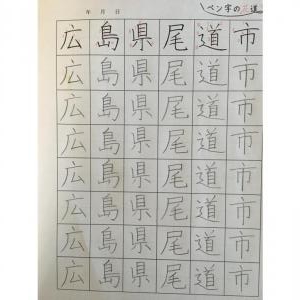 年 月 日
ペン字の 道
広島県尾道市
広島県尾道市
広島県尾道市
広島県尾道市
広島県尾道市
広島県尾道市
広島県尾道市
広島県尾道市